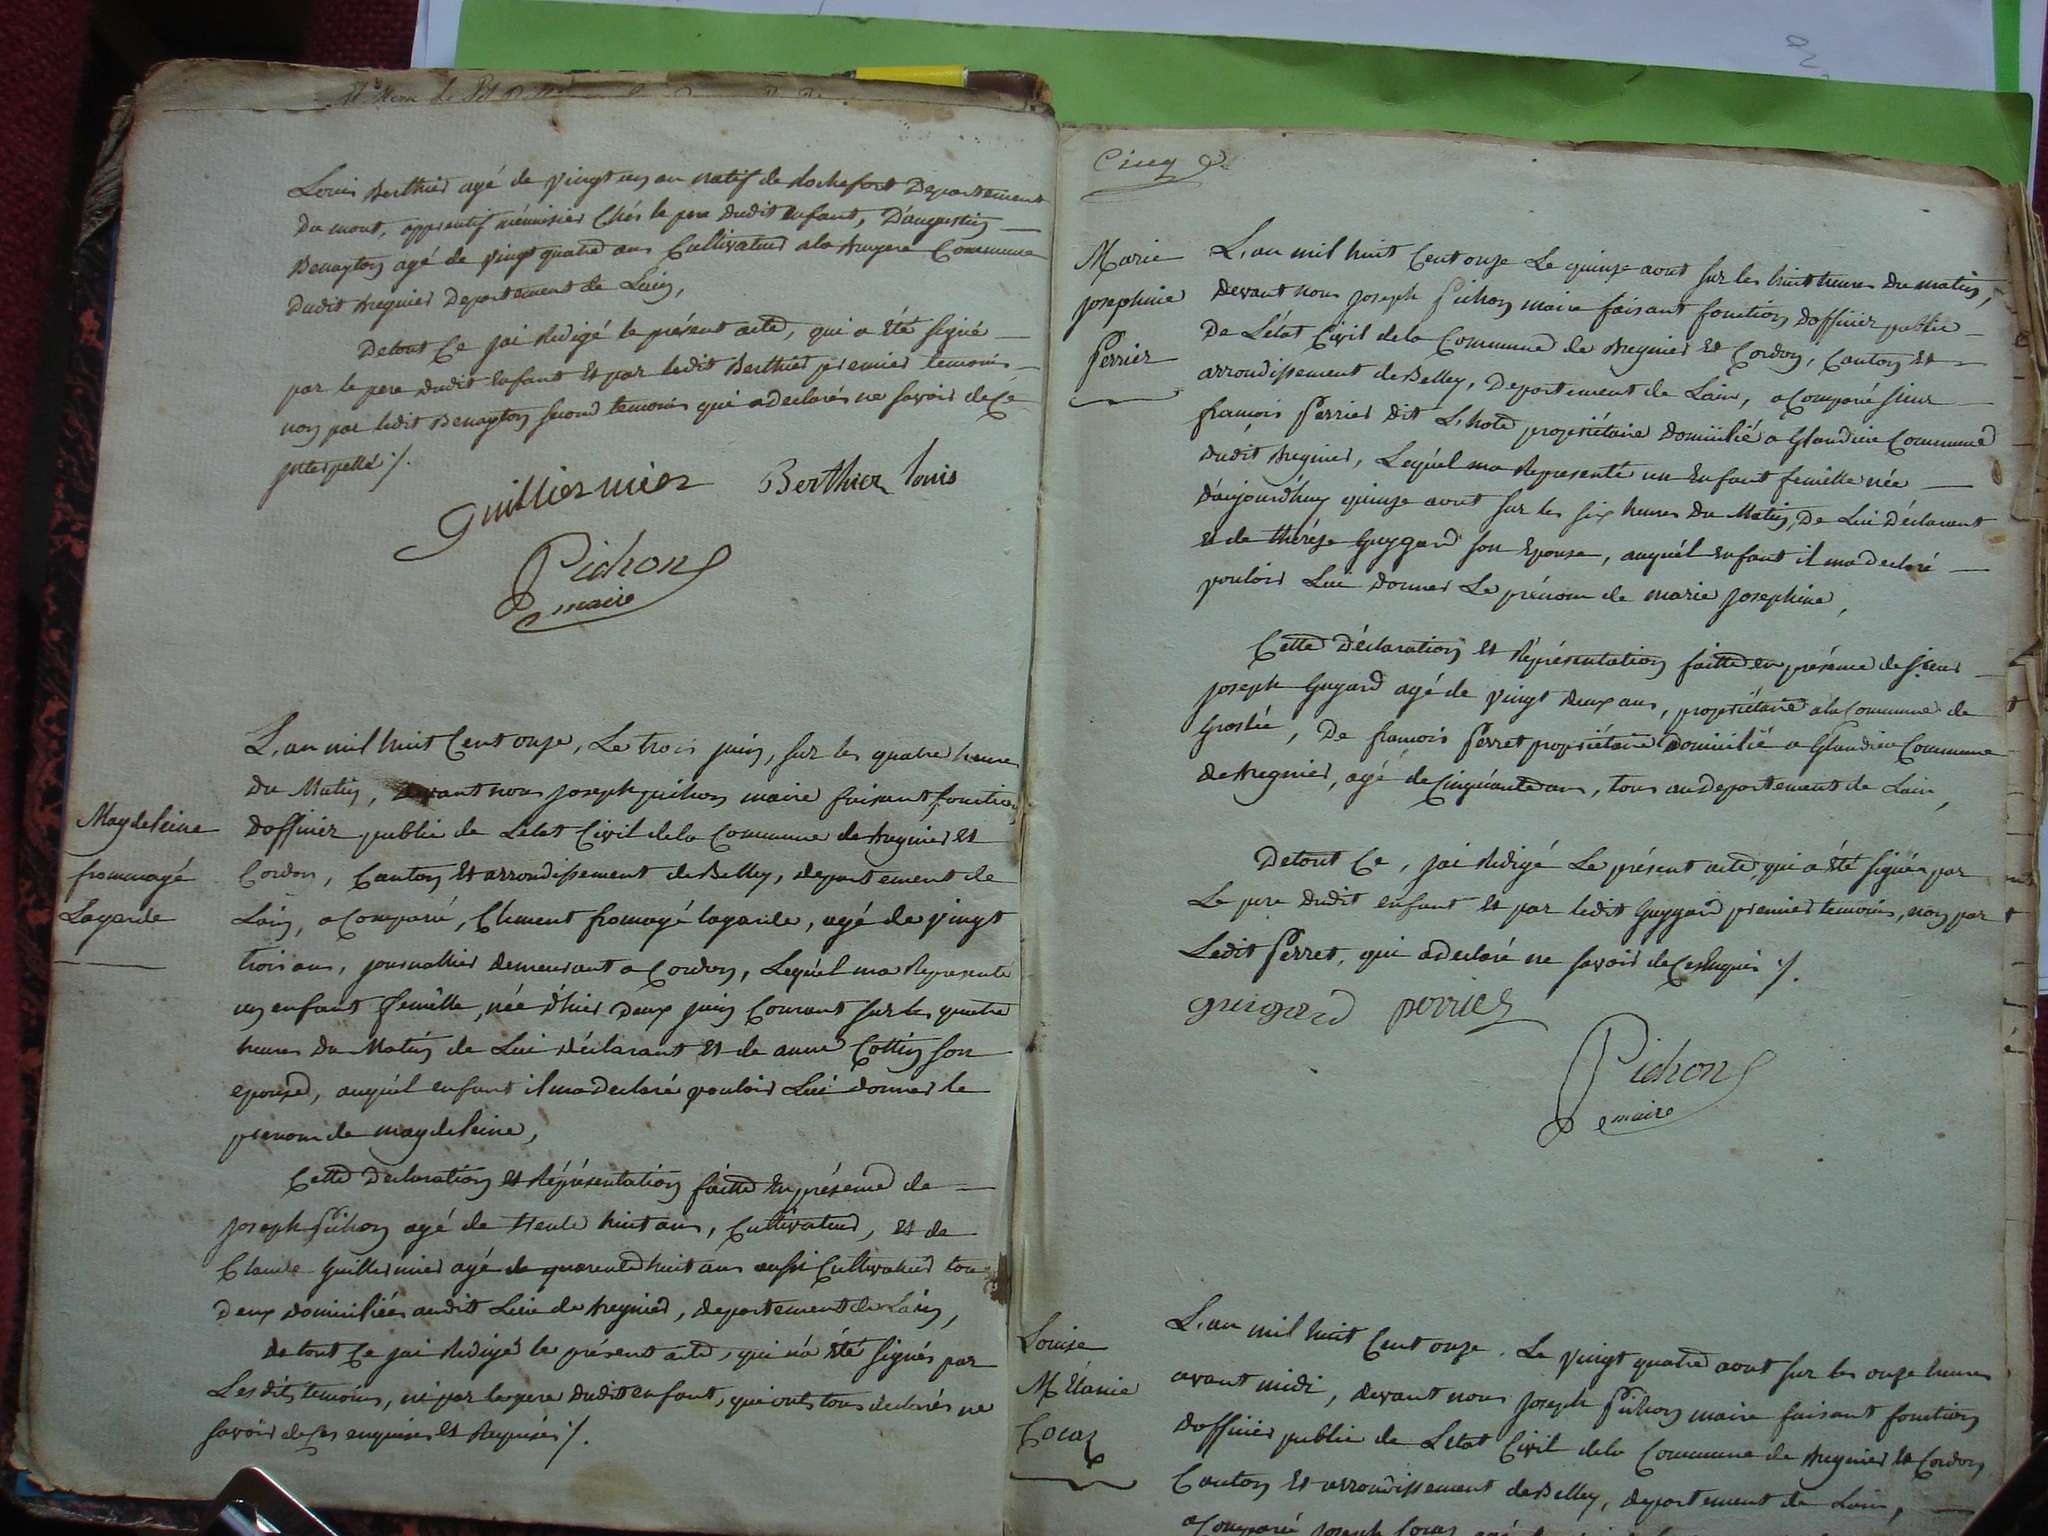 Louis Berthier agé de vingt un an natif de Rochefort Departement
Du mont, apprentif ménuisier Chés le pere dudit enfant, D'augustin
Benayton agé de vingt quatre ans Cultivateur a la bruyere Commune
Dudit Bregnier Departement de Lain,
Detout Ce jai Redigé le présent acte, qui a été signé
par le pere dudit Enfant Et par ledit Berthier premier temoin
non par ledit Benayton second temoin qui a declarés ne savoir de Ce
jnterpellé /.
Guilliermier Berthier louis
Pichon
maire
Magdeleine
frommagé
Lagarde
L'an mil huit Cent onze, Le trois juin, sur les quatre heure
Du Matin, devant nous joseph pichon maire faisant fonction
Dofficier public de Letat Civil dela Commune de Bregnier Et
Cordon, Canton Et arrondissement de Belley, departement de
Lain, a Comparu, Clement fromagé lagarde, agé de vingt
trois ans, journallier demeurant a Cordon, Lequél ma Représenté
un enfant femélle, née d'hier deux juin Courant sur les quatre
heures Du Matin de Lui déclarant Et de anne Cottin son
epouse, auquél enfant il ma declaré vouloir Lui donner le
prenom de magdeleine,
Cette Declaration Et Réprésentation faitte En présence de
joseph Pichon agé de trente huit ans, Cultivateur, Et de
Claude Guilliermier agé de quarente huit ans aussi Cultivateur tou
deux domiciliées audit Lieu de Bregnier, departement de Lain,
de tout Ce jai Redigé le présent acte, qui n'a Été signés par
Lesdits temoins, ni par le pere dudit enfant, qui onts tous declarés ne
savoir de Ces enquises Et Requises /.
Cinq
Marie
josephine
Perrier
L'an mil huit Cent onze Le quinze aout sur les huit heures du matin,
devant nous joseph Pichon maire faisant fonction dofficier public
De Létat Civil dela Commune de Bregnier Et Cordon, Canton Et
arrondissement de Belley, Departement de Lain, a Comparé sieur
françois Perrier dit L'hote propriétaire Domicilié a Glandieu Commune
dudit Bregnier, Lequél ma Représenté un Enfant femélle née
d'aujourd'huy quinze aout sur les six heures Du Matin, De Lui Déclarant
Et de thérése Guygard son Epouse, auquél enfant il ma declaré
vouloir Lui donner Le prénom de marie josephine,
Cette Déclaration Et Représentation faitte en présence de sieur
joseph Guyard agé de vingt deux ans, propriétaire a la Commune de
Groslée, De françois Perret propriétaire Domicilié a Glandieu Commune
de Bregnier, agé de Cinquante ans, tous au departement de Lain,
Detout Ce, jai Redigé Le présent acte, qui a été signés par
Le pere dudit enfant Et par ledit Guygard premier temoin, non par
Ledit Perret, qui a declaré ne savoir de Ce Enquis /.
guigard perrier
Pichon
maire
Louise
Mélanie
Cocaz
L'an mil huit Cent onze, Le vingt quatre aout sur les onze heures
avant midi, devant nous joseph Pichon maire faisant fonction
Dofficier public de Létat Civil dela Commune de Bregnier Et Cordon
Canton Et arrondissement de Belley, departement de Lain,
a Comparé joseph Cocaz agé